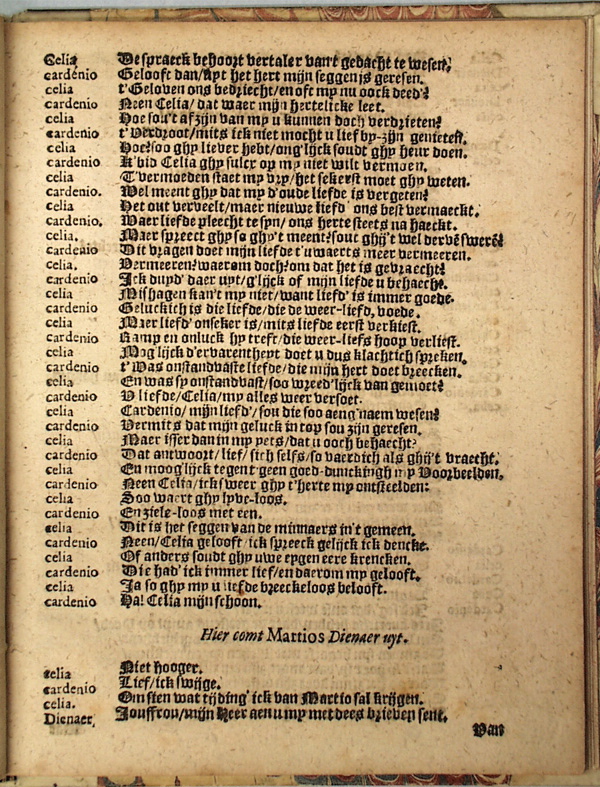 Celia De spraeck behoort vertaler van't gedacht te wesen.
cardenio Gelooft dan/uyt het hert mijn seggen is geresen.
celia t'Geloven ons bedriecht/en oft my nu oock deed?
cardenio Neen Celia/dat waer mijn hertelicke leet.
celia Hoe sou't afzijn van my u kunnen doch verdrieten?
cardenio t'Verdroot/mits ick niet mocht u lief by-zijn genieten.
celia Hoe? soo ghy liever hebt/ong'lijck soudt ghy heur doen.
cardenio K'bid Celia ghy sulcx op my niet wilt vermoen.
celia T'vermoeden staet my vry/het sekerst moet ghy weten.
cardenio. Wel meent ghy dat my d'oude liefde is vergeten?
celia Het out verveelt/maer nieuwe liefd' ons best vermaeckt.
cardenio. Waer liefde pleecht te syn/ons herte steets na haeckt.
celia. Maer spreect ghy so ghy't meent? sout ghy't wel dervē swerē?
cardenio Dit vragen doet mijn liefde t'uwaerts meer vermeeren.
celia. Vermeeren? waerom doch? om dat het is gevraecht?
cardenio Ick duyd' daer uyt/g'lijck of mijn liefde u behaecht.
celia Mishagen kan't my niet/want liefd' is immer goede.
cardenio Geluckich is die liefde/die de weer-liefd, voede.
celia Maer liefd' onseker is/mits liefde eerst verkiest.
cardenio Ramp en onluck hy treft/die weer-liefs hoop verliest.
celia Mog'lijck d'ervarentheyt doet u dus klachtich spreken.
cardenio t'Was onstandvaste liefde/die mijn hert doet breecken.
celia En was sy onstandvast/soo wreed'lijck van gemoet?
cardenio U liefde/Celia/my alles weer versoet.
celia Cardenio/mijn liefd'/sou die soo aeng'naem wesen?
cardenio Vermits dat mijn geluck in top sou zijn geresen.
celia Maer isser dan in my yets/dat u ooch behaecht?
cardenio Dat antwoort/lief/sich selfs/so vaerdich als ghij't vraecht.
celia En moog'lijck tegent geen goed-dunckingh my Voorbeelden.
cardenio Neen Celia/ick sweer ghy t'herte my ontsteelden:
celia Soo waert ghy lyve-loos.
cardenio En ziele-loos met een.
celia Dit is het seggen van de minnaers in't gemeen.
cardenio Neen/Celia gelooft ick spreeck gelijck ick dencke.
celia Of anders soudt ghy uwe eygen eere krencken.
cardenio Die had' ick immer lief/en daerom my gelooft.
celia Ja so ghy my u liefde breeckeloos belooft.
cardenio Ha! Celia mijn schoon.
Hier comt Martios Dienaer uyt.
celia Niet hooger.
cardenio Lief/ick swijge.
celia. Om sien wat tijding' ick van Martio sal krijgen.
Dienaer. Jouffrou/mijn Heer aen u my met dees brieven sent.
Van